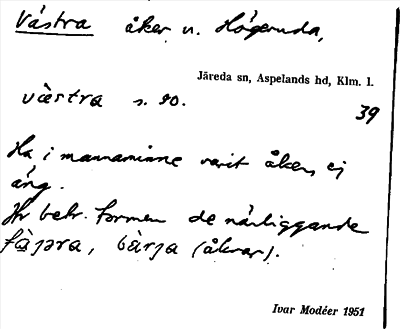 Västra åker n. Högeruda,
Järeda sn, Aspelands hd, Klm. l.
västra s. 90.
39
Ha i mannaminne varit åker, ej
äng.
Jfr betr. formen de närliggande
(åkrar).
Ivar Modéer 1951